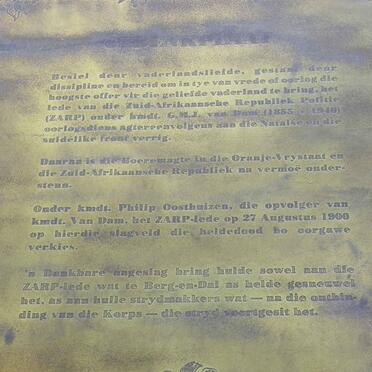 Besiel deur vaderlandsliefde, gestaal deur
dissipline en bereid om in tye van vrede of oorlog die
hoogste offer vir die geliefde vaderland te bring, het
lede van die Zuid-Afrikaansche Republiek Politie
(ZARP) onder kmdt. G.M.J. van Dam (1855 - 1940)
oorlogsdiens agtereenvolgens aan die Natalse en die
suidelike front verrig.
Daarna is die Boeremagte in die Oranje-Vrystaat en
die Zuid-Afrikaansche Republiek na vermoë onder-
steun.
Onder kmdt. Philip Oosthuizen, die opvolger van
kmdt. Van Dam, het ZARP-lede op 27 Augustus 1900
op hierdie slagveld die heldedood bo oorgawe
verkies.
'n Dankbare nageslag bring hulde sowel aan die
ZARP-lede wat te Berg-en-Dal as helde gesneuwel
het, as aan hulle strydmakkers wat — na die ontbin-
ding van die Korps — die stryd voortgesit het.